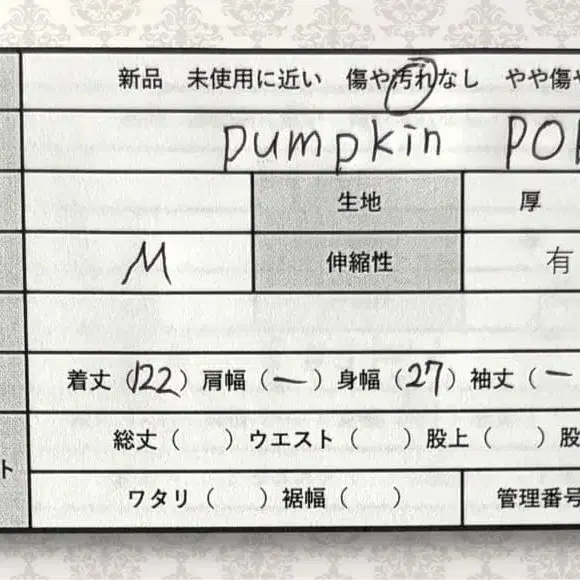 新品 未使用に近い 傷や汚れなし やや傷や
pumpkin POP
生地 厚
M 伸縮性 有
着丈(122) 肩幅(ー) 身幅(27) 袖丈(ー
総丈( ) ウエスト( ) 股上( ) 股
ト
ワタリ( ) 裾幅( ) 管理番号